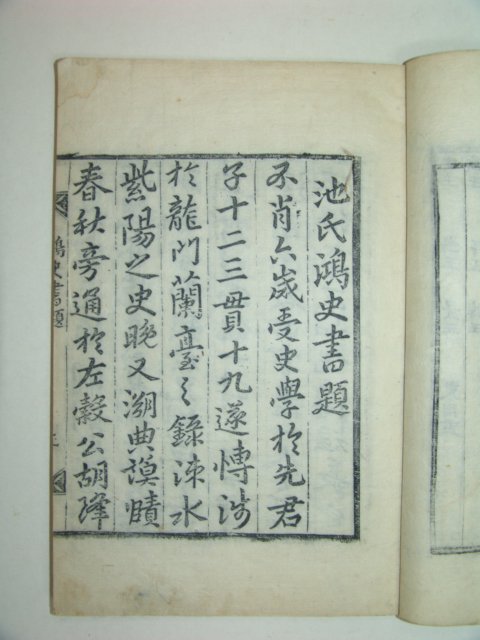 池氏鴻史書題
不肖六歲受史學於先君
子十二三貫十九遂博涉
於龍門蘭臺之錄涑水
紫陽之史晩又溯典謨賾
春秋旁通於左穀公胡絳
鴻史書題